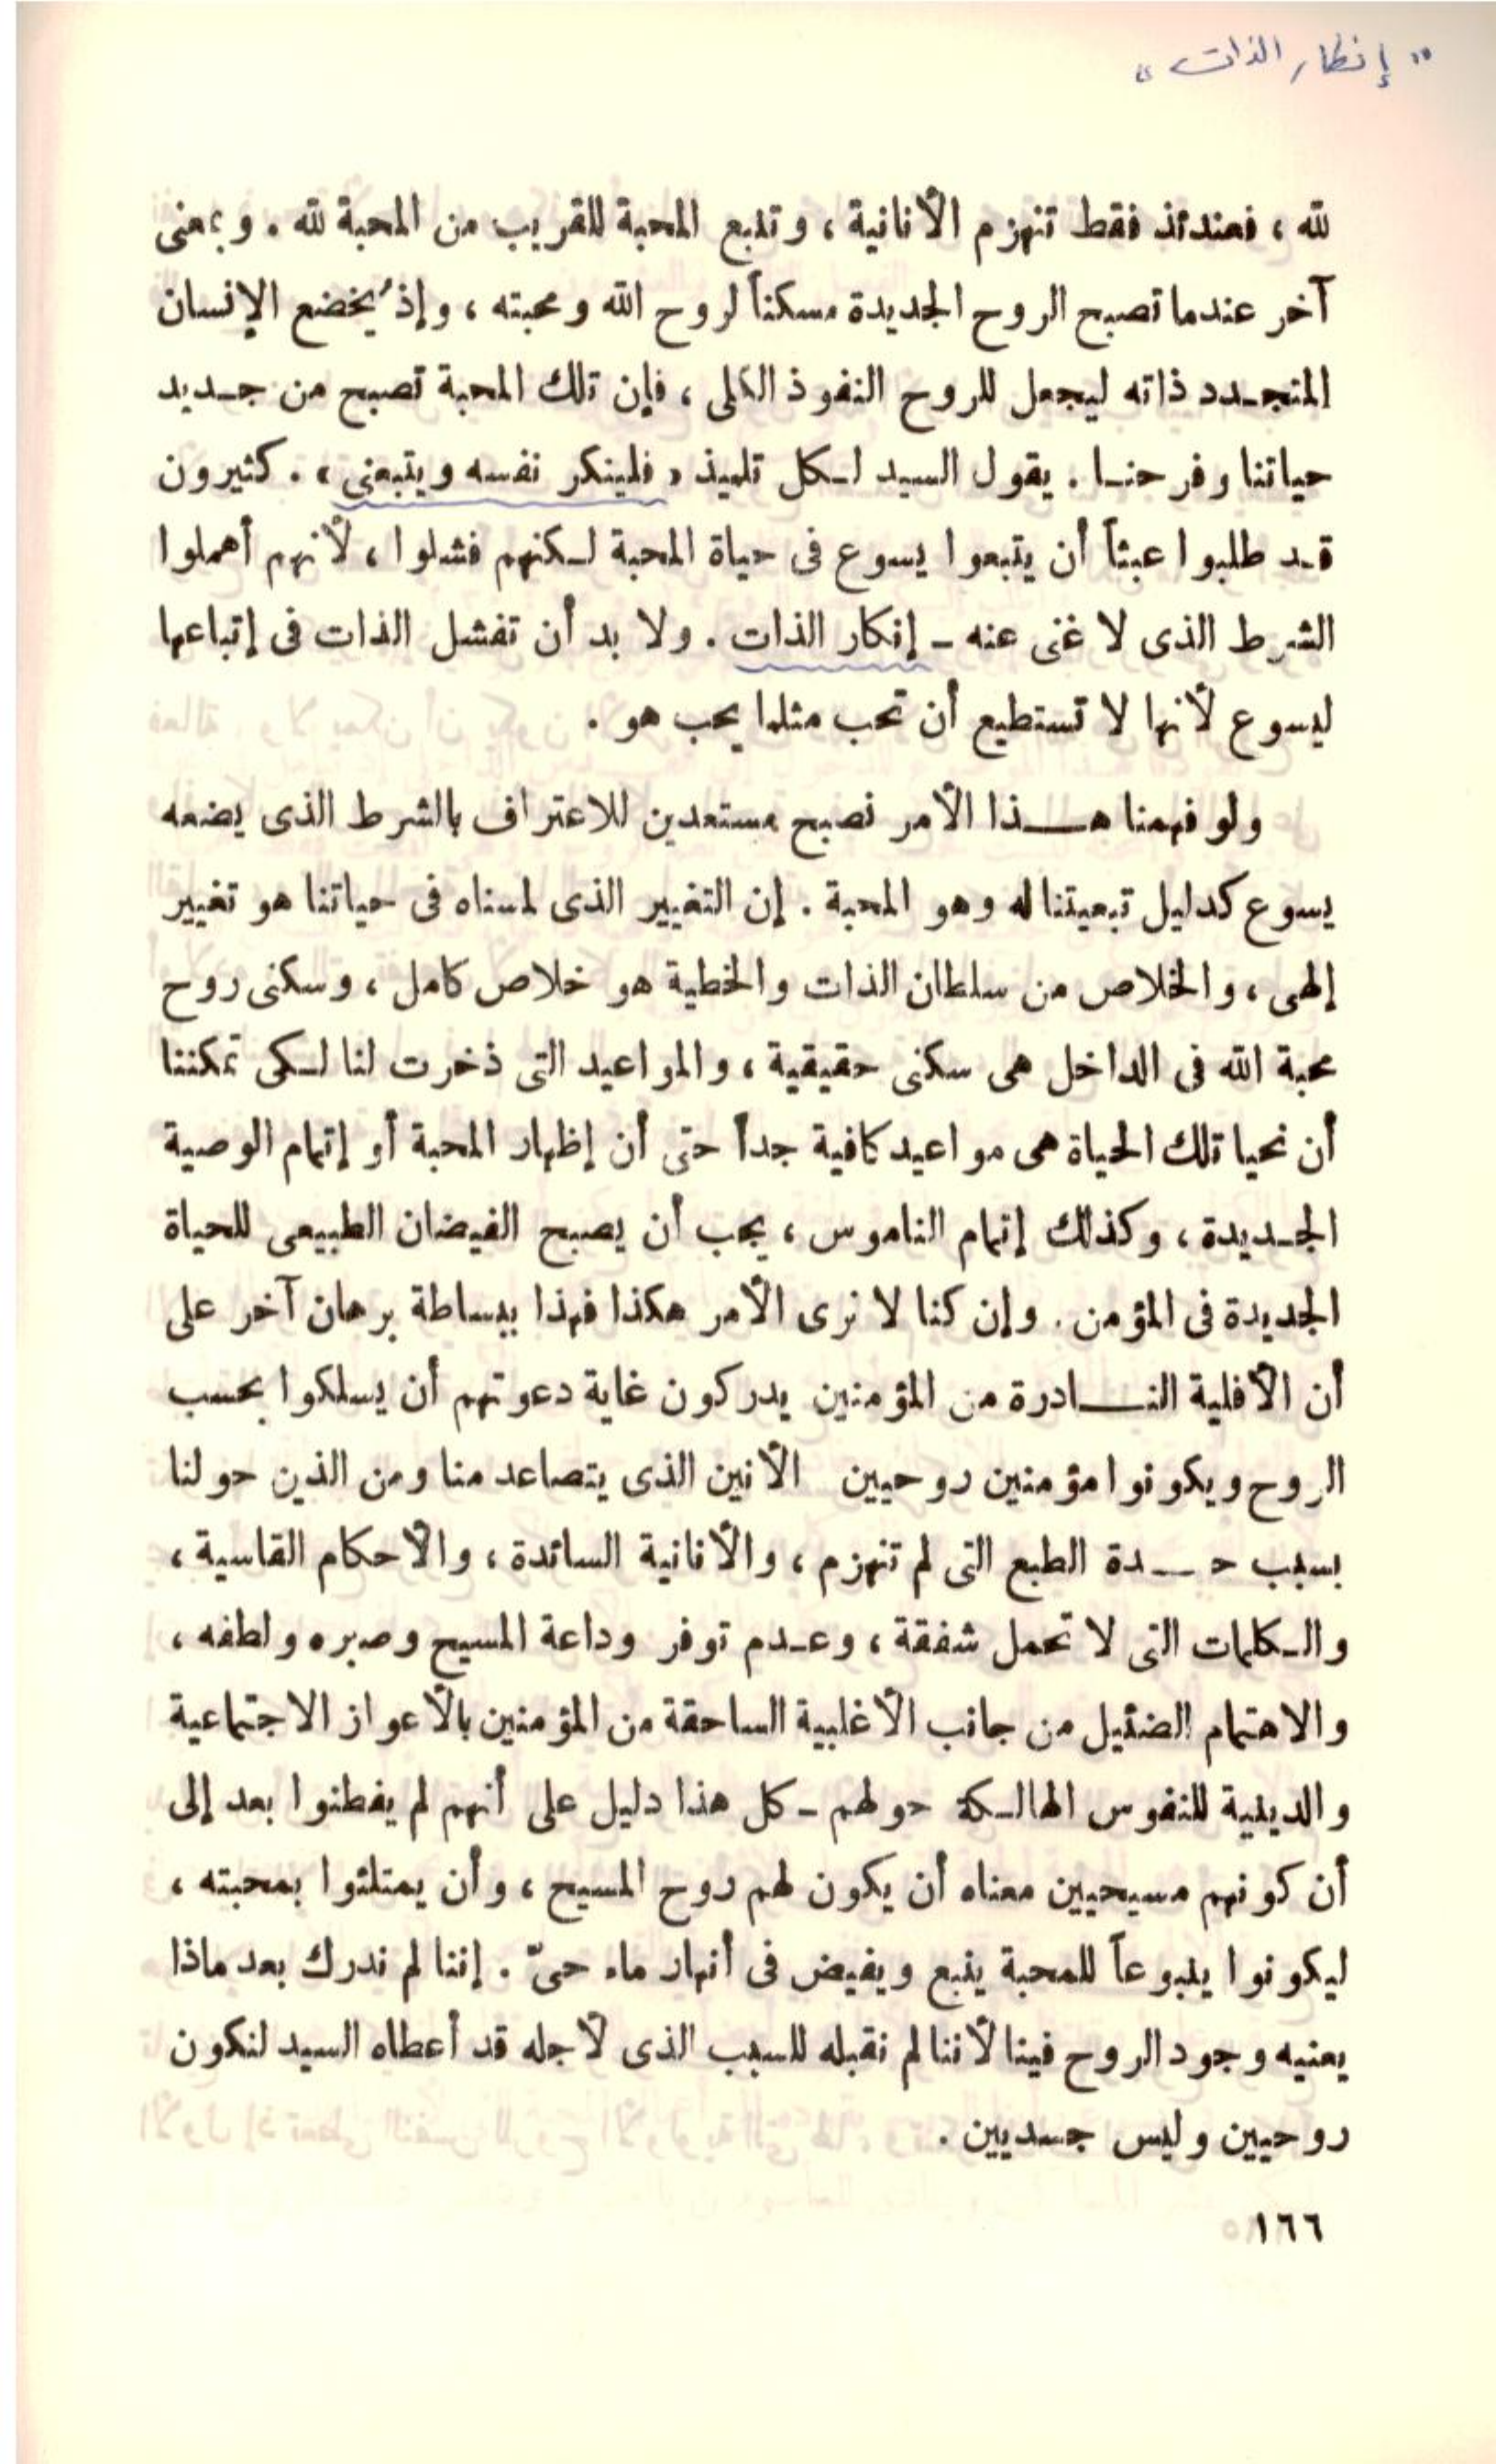 "إنكار الذات"
لله ، فعندئذ فقط تنهزم الأنانية ، وتنبع المحبة للقريب من المحبة لله . وبمعنى
آخر عندما تصبح الروح الجديدة مسكناً لروح الله ومحبته ، وإذ يُخضع الإنسان
المتجـدد ذاته ليجعل للروح النفوذ الكلى ، فإن تلك المحبة تصبح من جـديد
حياتنا وفرحنـا . يقول السيد لـكل تلميذ « فلينكر نفسه ويتبعنى » . كثيرون
قـد طلبوا عبثاً أن يتبعوا يسوع فى حياة المحبة لـكنهم فشلوا ، لأنهم أهملوا
الشرط الذى لا غنى عنه ـ إنكار الذات . ولا بد أن تفشل الذات فى إتباعها
ليسوع لأنها لا تستطيع أن تحب مثلما يحب هو .
ولو فهمنا هـــذا الأمر نصبح مستعدين للاعتراف بالشرط الذى يضعه
يسوع كدليل تبعيتنا له وهو المحبة . إن التغيير الذى لمسناه فى حياتنا هو تغيير
إلهى ، والخلاص من سلطان الذات والخطية هو خلاص كامل ، وسكنى روح
محبة الله فى الداخل هى سكنى حقيقية ، والمواعيد التى ذخرت لنا لـكى تمكننا
أن نحيا تلك الحياة هى مواعيد كافية جداً حتى أن إظهار المحبة أو إتمام الوصية
الجـديدة ، وكذلك إتمام الناموس ، يجب أن يصبح الفيضان الطبيعى للحياة
الجديدة فى المؤمن . وإن كنا لا نرى الأمر هكذا فهذا ببساطة برهان آخر على
أن الأقلية النـــادرة من المؤمنين يدركون غاية دعوتهم أن يسلكوا بحسب
الروح ويكونوا مؤمنين روحيين الأنين الذى يتصاعد منا ومن الذين حولنا
بسبب حـــدة الطبع التى لم تنهزم ، والأنانية السائدة ، والأحكام القاسية ،
والـكلمات التى لا تحمل شفقة ، وعـدم توفر وداعة المسيح وصبره ولطفه ،
والاهتمام الضئيل من جانب الأغلبية الساحقة من المؤمنين بالأعواز الاجتماعية
والدينية للنفوس الهالـكة حولهم ـ كل هذا دليل على أنهم لم يفطنوا بعد إلى
أن كونهم مسيحيين معناه أن يكون لهم روح المسيح ، وأن يمتلئوا بمحبته ،
ليكونوا ينبوعاً للمحبة ينبع ويفيض فى أنهار ماء حىّ . إننا لم ندرك بعد ماذا
يعنيه وجود الروح فينا لأننا لم نقبله للسبب الذى لأجله قد أعطاه السيد لنكون
روحيين وليس جسديين .
١٦٦